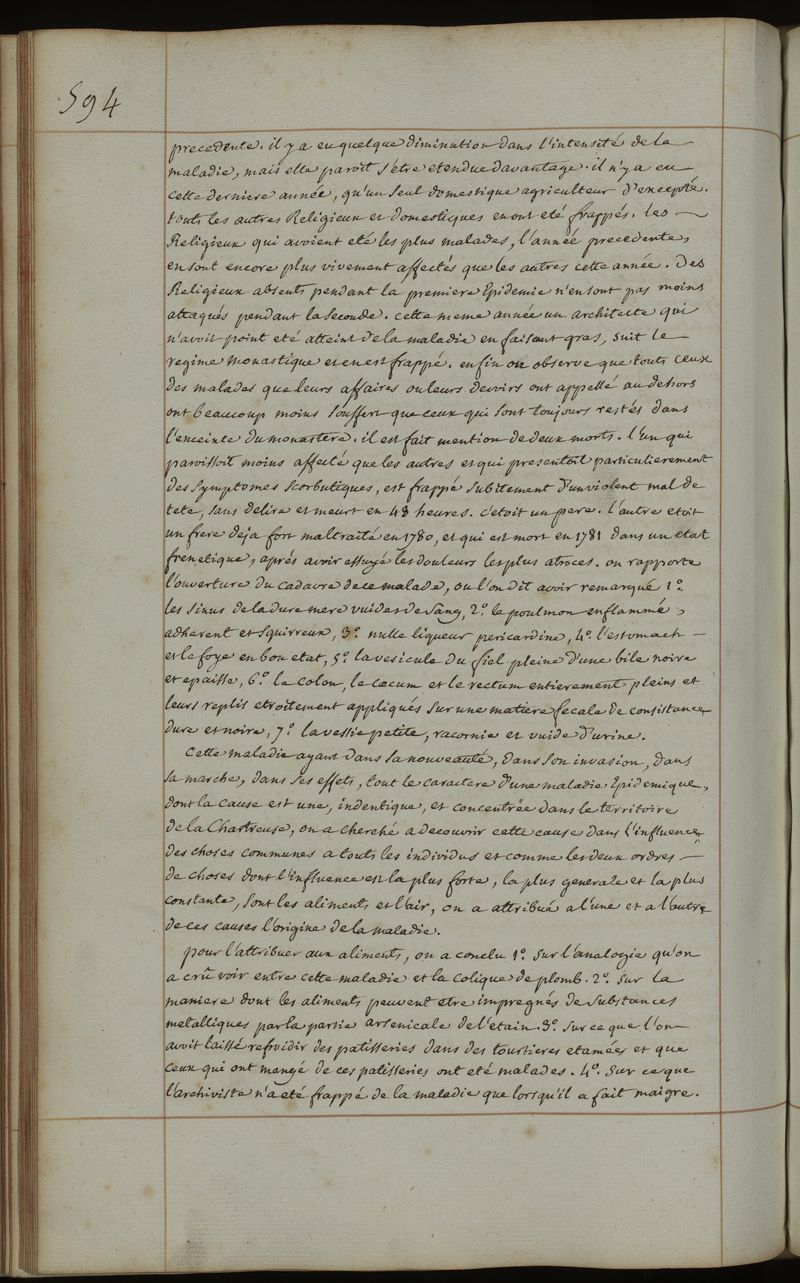 594
precedente. il y a eu quelque diminution dans l'intensité de la
maladie, mais elle paroit s'etre etendue davantage. il n'y a eu
cette derniere année, qu'un seul domestique agriculteur d'excepté.
touts les autres Religieux et domestiques en ont eté frappés. les
Religieux qui avoient eté les plus malades, l'année precedente,
en sont encore plus vivement affectés que les autres cette année. Des
Religieux absents pendant la premiere Epidemie n'en sont pas moins
attaqués pendant la seconde. cette meme année un architecte qui
n'avoit point eté atteint de la maladie en faisant gras, suit le
regime monastique et en est frappé. enfin on observe que touts ceux
des malades que leurs affaires ou leurs devoirs ont appellé au dehors
ont beaucoup moins souffert que ceux qui sont toujours restés dans
l'enceinte du monastere. il est fait mention de deux morts. l'un qui
paroissoit moins affecté que les autres et qui presentoit particulierement
des symptomes scorbutiques, est frappé subitement d'un violent mal de
tete, sans delire et meurt en 48 heures. c'etoit un pere. l'autre etoit
un frere deja fort maltraité en 1780, et qui est mort en 1781 dans un etat
frenetique, aprés avoir essuyé les douleurs les plus atroces. on rapporte
l'ouverture du cadavre de ce malade, ou l'on dit avoir remarqué 1°.
les sinus de la dure mere vuides de sang, 2°. le poulmon enflammé,
adherent et squirreux, 3°. nulle liqueur pericardine, 4°. l'estomach
et le foye en bon etat, 5°. la vesicule du fiel pleine d'une bile noire
et epaisse, 6°. le colon, le cœcum et le rectum entierement pleins et
leurs replis etroitement appliqués sur une matiere fecale de consistance
dure et noire, 7°. la vessie petite, racornie et vuide d'urine.
Cette maladie ayant dans sa nouveauté, dans son invasion, dans
sa marche, dans ses effets, tout le caractere d'une maladie Epidemique,
dont la cause est une, indentique, et concentrée dans le territoire
de la Chartreuse, on a cherché a decouvrir cette cause dans l'influence
des choses communes a touts les individus et comme les deux ordres
de choses dont l'influence est la plus forte, la plus generale et la plus
constante, sont les aliments et l'air, on a attribué a l'une et a l'autre
de ces causes l'origine de la maladie.
pour l'attribuer aux aliments, on a conclu 1°. sur l'analogie qu'on
a crû voir entre cette maladie et la colique de plomb. 2°. sur la
maniere dont les aliments peuvent etre impregnés de substances
metalliques par la partie arsenicale de l'etain. 3°. sur ce que l'on
avoit laissé refroidir des patisseries dans des tourtieres etamées et que
ceux qui ont mangé de ces patisseries ont eté malades. 4°. sur ce que
l'archiviste n'a eté frappé de la maladie que lorsqu'il a fait maigre.